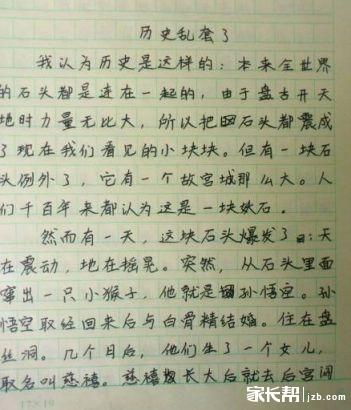 历史乱套了
我认为历史是这样的：本来全世界
的石头都是连在一起的，由于盘古开天
地时力量无比大，所以把石头都震成
了现在我们看见的小块块。但有一块石
头例外了，它有一个故宫城那么大。人
们千百年来都认为这是一块妖石．
然而有一天，这块石头爆发了：天
在震动，地在摇晃。突然，从石头里面
窜出一只小猴子，他就是孙悟空。孙
悟空取经回来后与白骨精结婚。住在盘
丝洞。几个月后，他们生了一个女儿，
取名叫慈禧。慈禧长大后就去后宫阔
17×19
家长帮 jzb.com